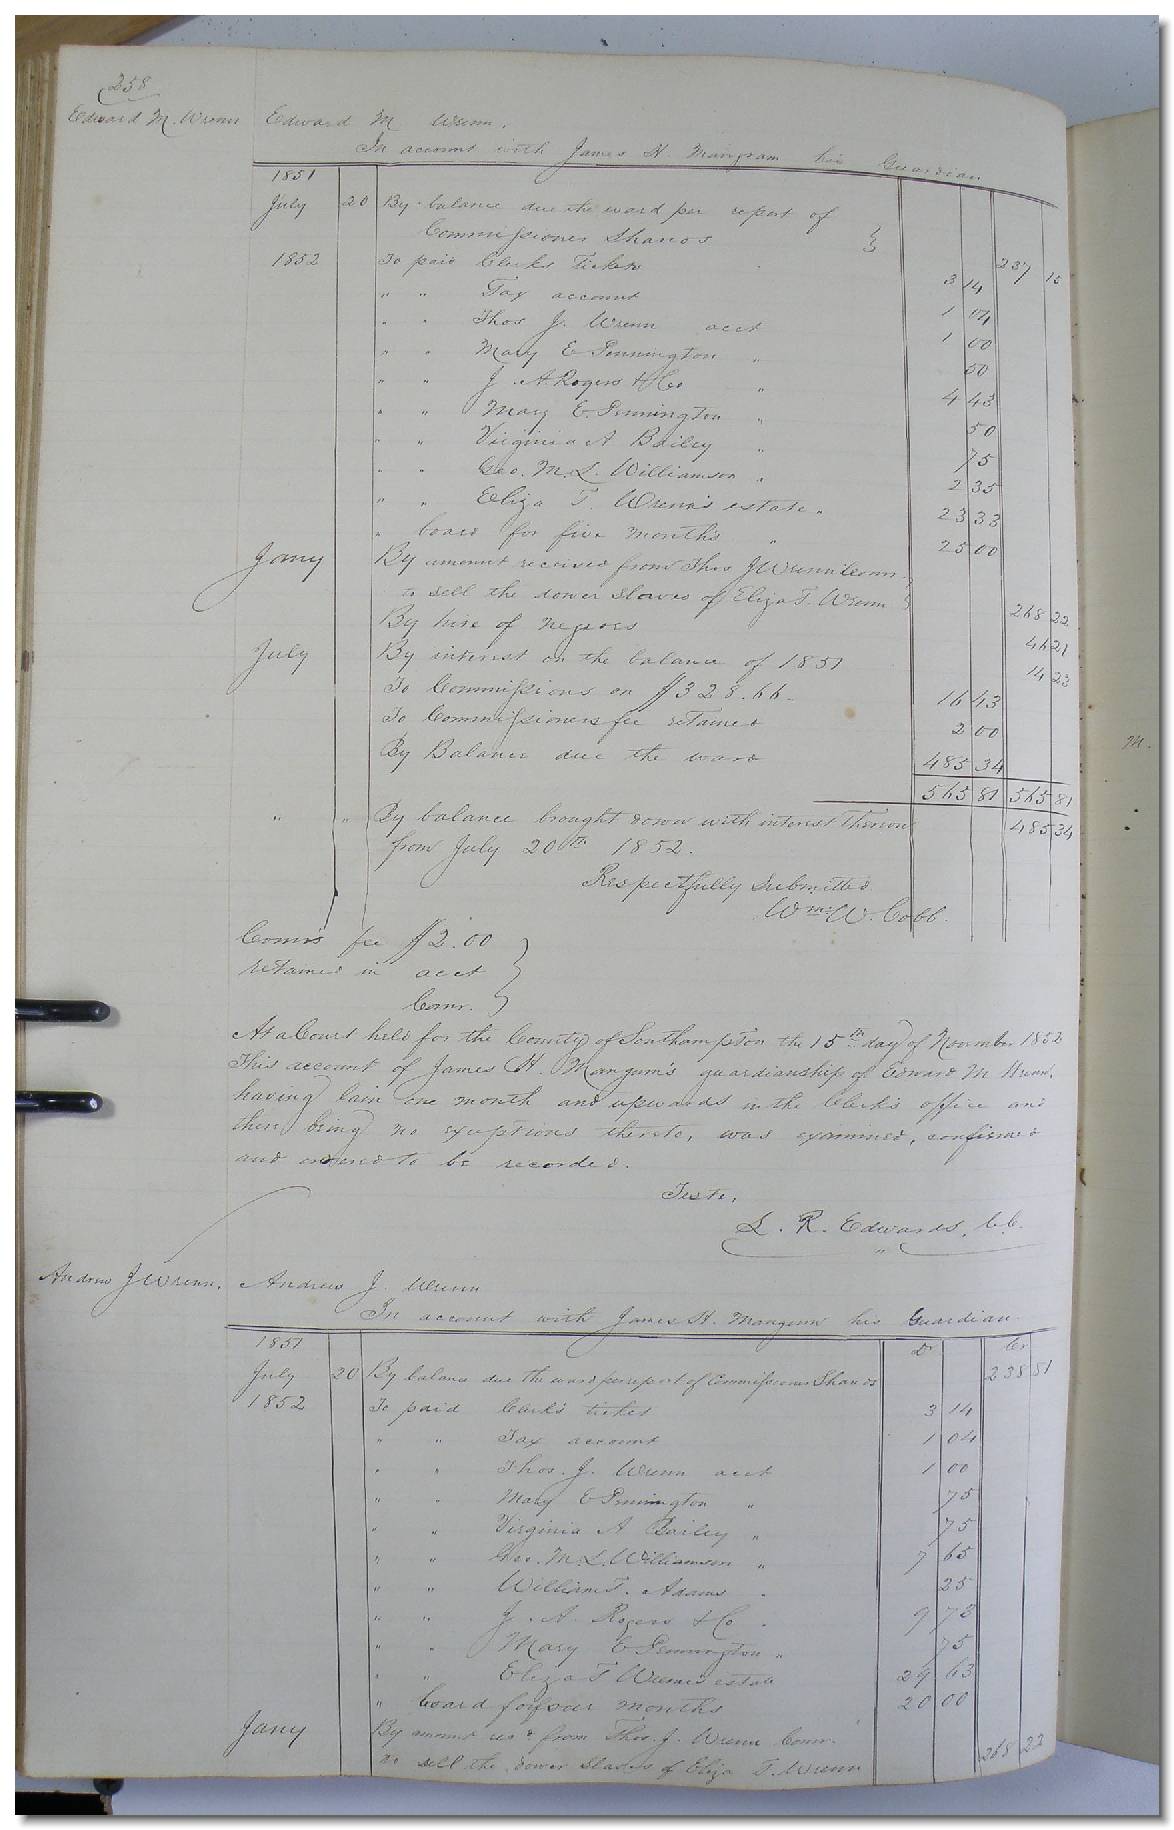 258
Edward M. Wrenn
Edward M Wrenn.
In account with James H Mangram his Guardian
1851
July 20 By balance due the ward per report of
Commissioner Shands 237 15
1852 To paid Clerks Tickets 3 14
" " Tax account 1 04
" " Thos J. Wrenn acct 1 00
" " Mary E Pennington " 50
" " J. A Rogers & Co " 4 43
" " Mary E. Pennington " 50
" " Virginia A Bailey " 75
" " Geo. M. L. Williamson " 2 35
" " Eliza T. Wrenn's estate " 23 33
" board for five months " 25 00
Jany By amount received from Thos J Wrenn Comr.
to sell the dower slaves of Eliza T. Wrenn 268 22
By hire of negroes 46 21
July By interest on the balance of 1851 14 23
To Commissions on $328.66 16 43
To Commissioners fee retained 2 00
By Balance due the ward 485 34
565 81 565 81
" " By balance brought down with interest thereon 485 34
from July 20th 1852.
Respectfully submitted
Wm. W. Cobb.
Comr's fee $2.00
retained in acct
Comr.
At a Court held for the County of Southampton the 15th day of November 1852
This account of James H. Mangum's guardianship of Edward M. Wrenn,
having lain one month and upwards in the Clerk's office and
there being no exceptions thereto, was examined, confirmed
and ordered to be recorded.
Teste,
L. R. Edwards, C.C.
Andrew J Wrenn.
Andrew J. Wrenn
In account with James H. Mangum his Guardian
1851 Dr Cr
July 20 By balance due the ward per report of Commissioner Shands 238 51
1852 To paid Clerk's ticket 3 14
" " Tax account 1 04
" " Thos. J. Wrenn acct 1 00
" " Mary E Pennington " 75
" " Virginia A Bailey " 75
" " Geo. M. L. Williamson " 7 65
" " William T. Adams " 25
" " J. A. Rogers & Co " 9 73
" " Mary E Pennington " 75
" " Eliza T Wrenns estate 29 63
" board for four months 20 00
Jany By amount recd from Thos. J. Wrenn Comr.
to sell the dower slaves of Eliza T. Wrenn 268 22
M.